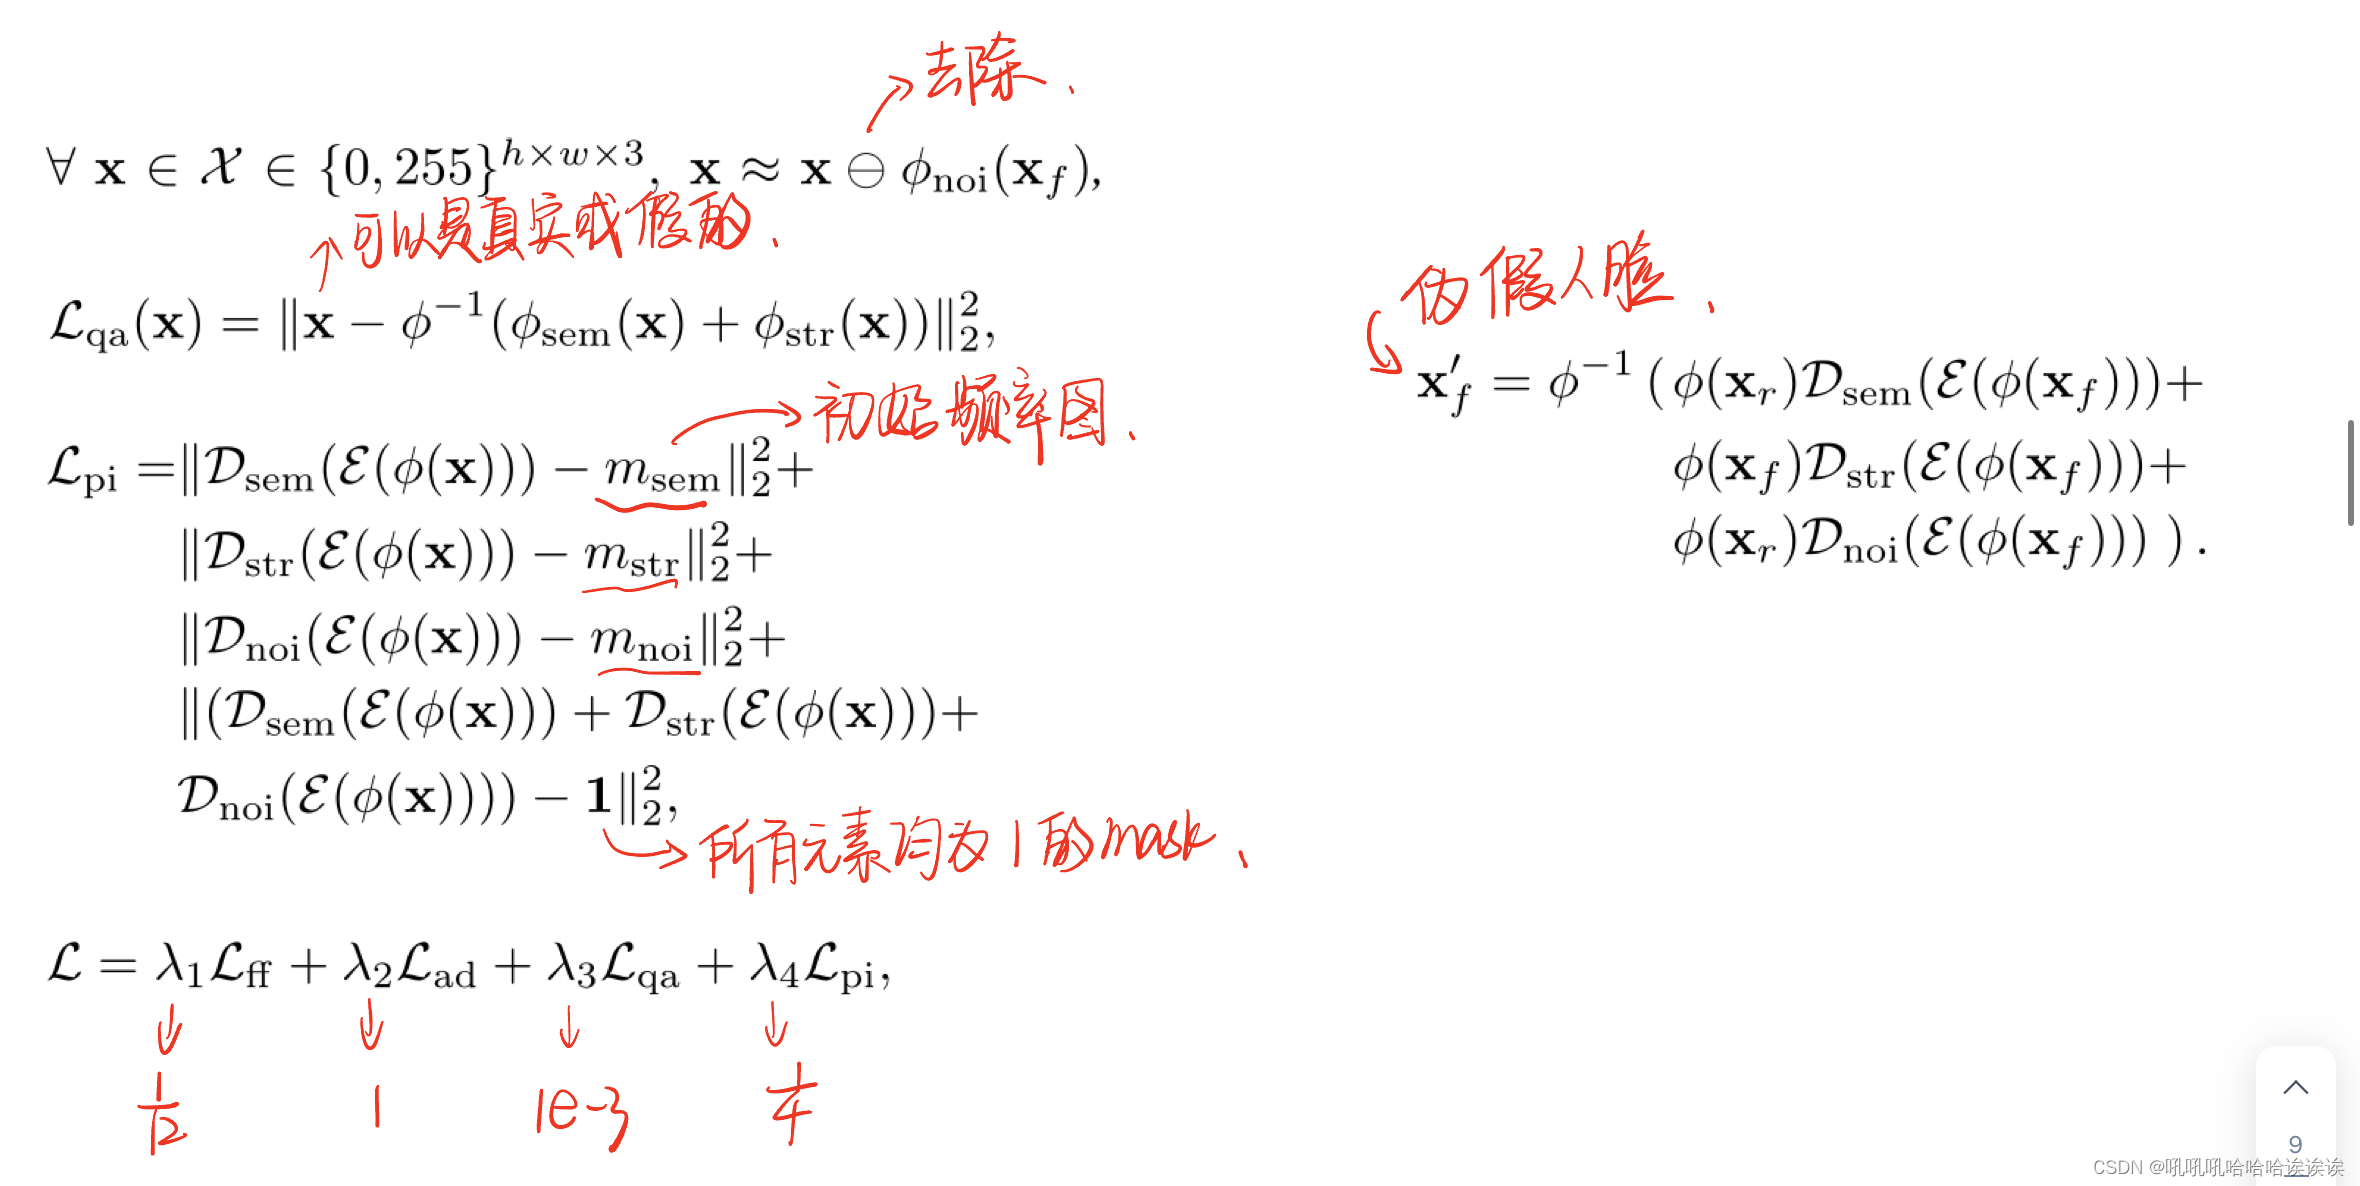 去除、
∀ x ∈ 𝒳 ∈ {0, 255}^{h×w×3}, x ≈ x ⊖ ϕ_noi(x_f),
可以是真实或假的、
ℒ_qa(x) = ‖x − ϕ^{−1}(ϕ_sem(x) + ϕ_str(x))‖_2^2,
初始频率图、
ℒ_pi =‖𝒟_sem(ℰ(ϕ(x))) − m_sem‖_2^2+
‖𝒟_str(ℰ(ϕ(x))) − m_str‖_2^2+
‖𝒟_noi(ℰ(ϕ(x))) − m_noi‖_2^2+
‖(𝒟_sem(ℰ(ϕ(x))) + 𝒟_str(ℰ(ϕ(x)))+
𝒟_noi(ℰ(ϕ(x)))) − 1‖_2^2,
所有元素均为1的mask、
ℒ = λ_1ℒ_ff + λ_2ℒ_ad + λ_3ℒ_qa + λ_4ℒ_pi,
1/12 1 1e-3 1/4
伪假人脸、
x′_f = ϕ^{−1} (ϕ(x_r)𝒟_sem(ℰ(ϕ(x_f)))+
ϕ(x_f)𝒟_str(ℰ(ϕ(x_f)))+
ϕ(x_r)𝒟_noi(ℰ(ϕ(x_f))) ) .
9
CSDN @吼吼吼哈哈哈诶诶诶